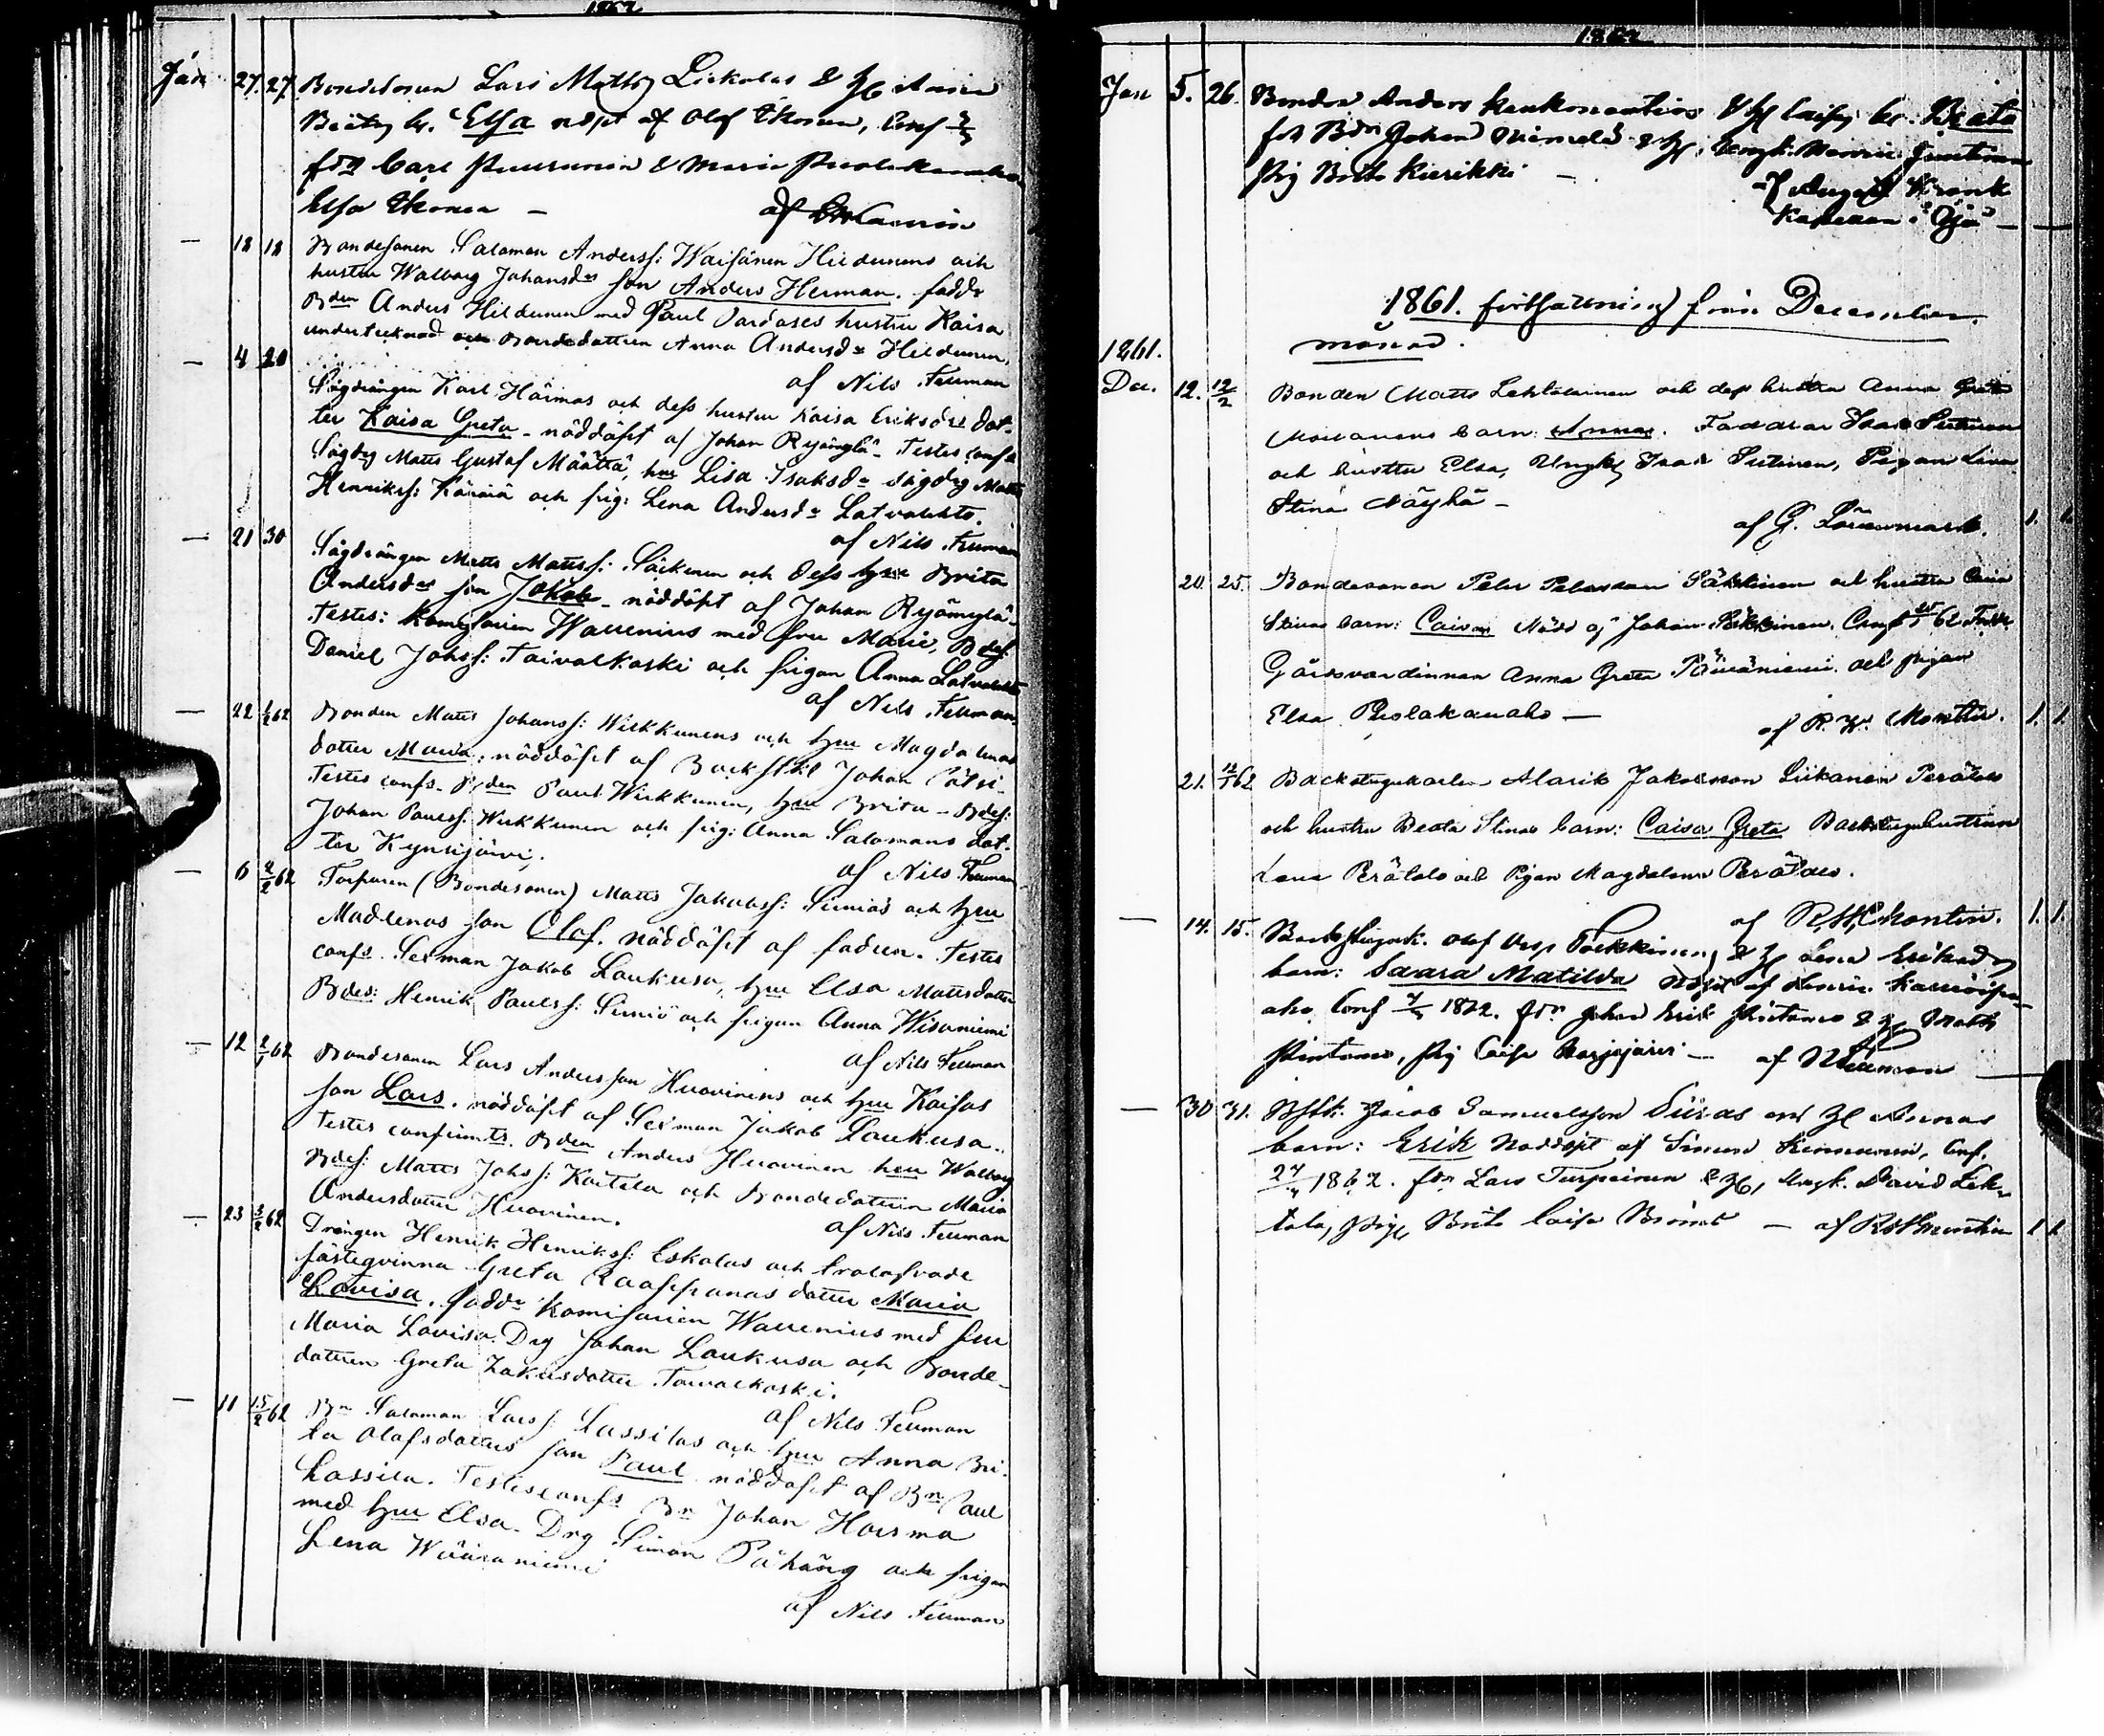 1862
Jan 27. 27. Bondesonen Lars Matts Liekolas & H Anna
br. Elsa nödpt af Olof Ekonen, Conf
fdr Carl & Maria
Elsa Ekonen — af
— 18 18 Bondesonen Salomon Anderss: Waisänen Hildunens och
hustru Walborg Johansdrs son Anders Herman. faddr
Bden Anders Hildunen med Paul Pardases hustru Kaisa
undertecknad och Bondedottren Anna Andersdr Hildunen,
af Nils Fellman
— 4 20 Sågdrängen Karl Härmas och dess hustru Kaisa Eriksdrs dot-
ter Kaisa Greta - nöddöpt af Johan Ryänglä - Testes confs
Sågdrg Matts Gustaf Määttä, hru Lisa Isaksdr sågdrg Matts
Henrikss: Kärnä och pig: Lena Andersdr Latvalehto.
af Nils Fellman
— 21 30 Sågdrängen Matts Mattss: Säkenen och dess hru Brita
Andersdrs son Jakob - nöddöpt af Johan Ryänglä -
Testes: Komisarien Warrenius med fru Maria, Bdes:
Daniel Johss: Taivalkoski och pigan Anna Latvalehto
af Nils Fellman
— 22 1/2 62 Bonden Matts Johanss: Wirkkunens och hru Magdalenas
dotter Maria, nöddöpt af Backst:kl Johan Pätsi -
Testes confs - Bden Paul Wirkkunen, hru Brita - Bdes:
Johan Pauls: Wirkkunen och pig: Anna Salomons dot-
ter Kynsijärvi.
af Nils Fellman
— 6 2/2 62 Torparen (Bondesonen) Matts Jakobss: Simiös och hru
Madlenas son Olof. nöddöpt af fadren. Testes
confs. Sexman Jakob Laukusa, hru Elsa Mattsdotter
Bdes: Henrik Paulss: Simiö och pigan Anna Wisaniemi
af Nils Fellman
— 12 2/2 62 Bondesonen Lars Andersson Huovinens och hru Kaisas
son Lars. nöddöpt af Sexman Jakob Laukusa..
Testes confirmts. Bden Anders Huovinen hru Walborg
Bdes: Matts Johss: Kaitila och Bondedottren Maria
Andersdotter Huovinen.
af Nils Fellman
— 23 3/2 62 Drängen Henrik Henrikss: Eskolas och trolofvade
fästeqvinna Greta Raappanas dotter Maria
Lovisa. faddr Komisarien Warrenius med fru
Maria Lovisa. Drg Johan Laukusa och Bonde-
dottren Greta Zakrisdotter Taivalkoski.
af Nils Fellman
— 11 15/2 62 Bn Salomon Larss: Lassilas och hru Anna Bri-
ta Olofsdotters son Paul nöddöpt af Bn Paul
Lassila. Testisconfs Bn Johan Horsma
med hru Elsa. Drg Simon Pähärg och pigan
Lena Wääräniemi
af Nils Fellman
1862
Jan 5. 26. Bonden Anders & H Caisas br. Beata
fdr Bdn Johan Niemelä & H, Ungk.
Pig Brita Kierikki —
af August Krank
Kapellan i Ijo —
1861. fortsättning från December
månad.
1861.
Dec. 12. 12/2 Bonden Matts Lehtolainen och dess hustru Anna Greta
barn: Anna. Faddrar Isak Sutinen
och hustru Elsa, Ungk. Isak Sutinen, Pigan Lisa
Stina Näyhä —
af G. 1. 1.
20. 25. Bondesonen Peter Petersson Säkkinen och hustru Caisa
Stinas barn: Caisa Nödd af Johan Säkkinen. Conf 62. Faddr
Gårdsvärdinnan Anna Greta Päivärinta och pigan
Elsa Puolakanaho — af R. W. Montin. 1. 1.
21. 12/1 62 Backstugukarlen Alarik Jakobsson Liikanen Perätalo
och hustru Beata Stinas barn: Caisa Greta Backstuguhustrun
Lena Perätalo och Pigan Magdalena Perätalo.
af R. W. Montin. 1. 1.
— 14. 15. Backstuguk. Olof Olsson & H Lena Eriksdrs
barn: Saara Matilda nödpt af
aho. Conf 1862. fdr Johan Erik Pintamo & H
Pintamo, Pig Caisa Korpijärvi — af N Fellman
— 30 31. Bstk. Jacob Samuelsson och H Annas
barn: Erik Noddöpt af Simon, Conf.
1862. fdr Lars Turpeinen & H, Ungk. David Leh-
tola, Pig Brita Caisa — af R W Montin 1 1